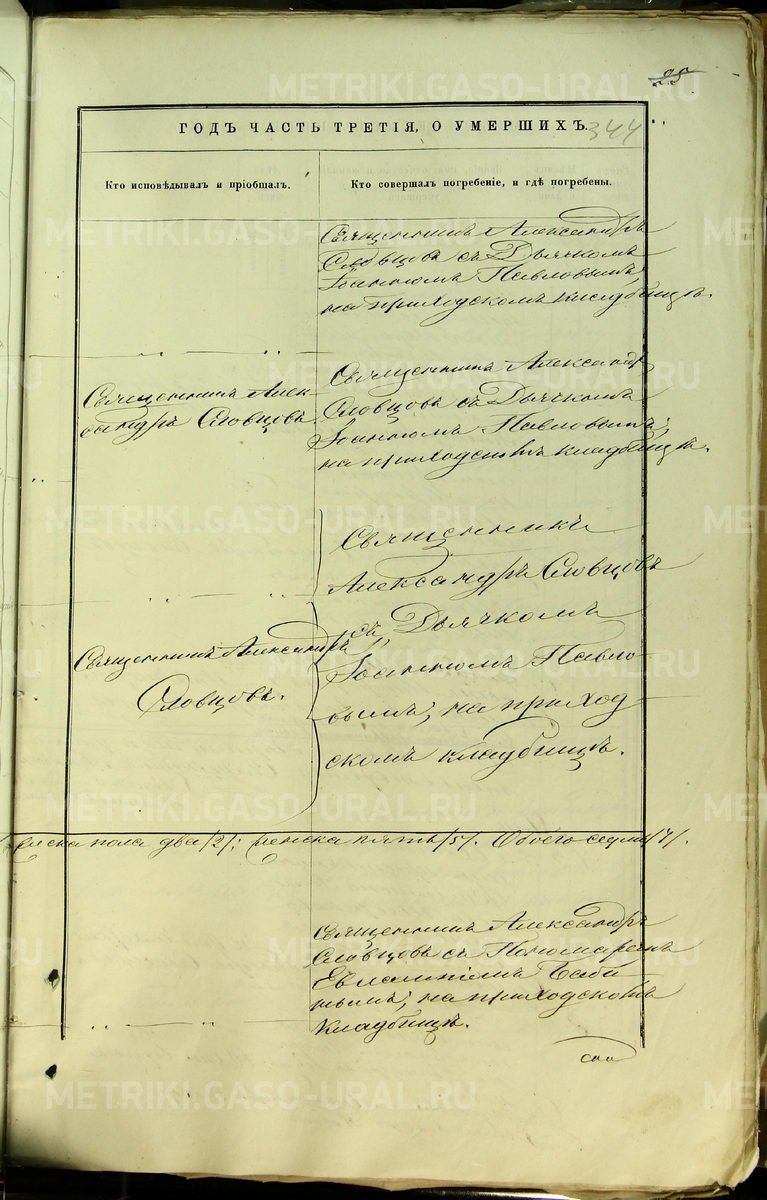 ГОДЪ ЧАСТЬ ТРЕТІЯ, О УМЕРШИХЪ.
344
Кто исповѣдывалъ и пріобщалъ.
Кто совершалъ погребеніе, и гдѣ погребены.
Священникъ Александръ
Словцовъ съ Дьячкомъ
Іоанномъ Павловымъ,
на приходскомъ кладбищѣ.
Священникъ Алек-
сандръ Словцовъ.
Священникъ Александръ
Словцовъ съ Дьячкомъ
Іоанномъ Павловымъ;
на приходскомъ кладбищѣ.
Священникъ Александръ
Словцовъ.
Священникъ
Александръ Словцовъ
съ Дьячкомъ
Іоанномъ Павло-
вымъ; на приход
скомъ кладбищѣ.
пола два /2/; женска пять /5/. Обоего седмь /7/.
Священникъ Александръ
Словцовъ съ Пономаремъ
Евлампіемъ
на приходскомъ
кладбищѣ.
METRIKI.GASO-URAL.RU